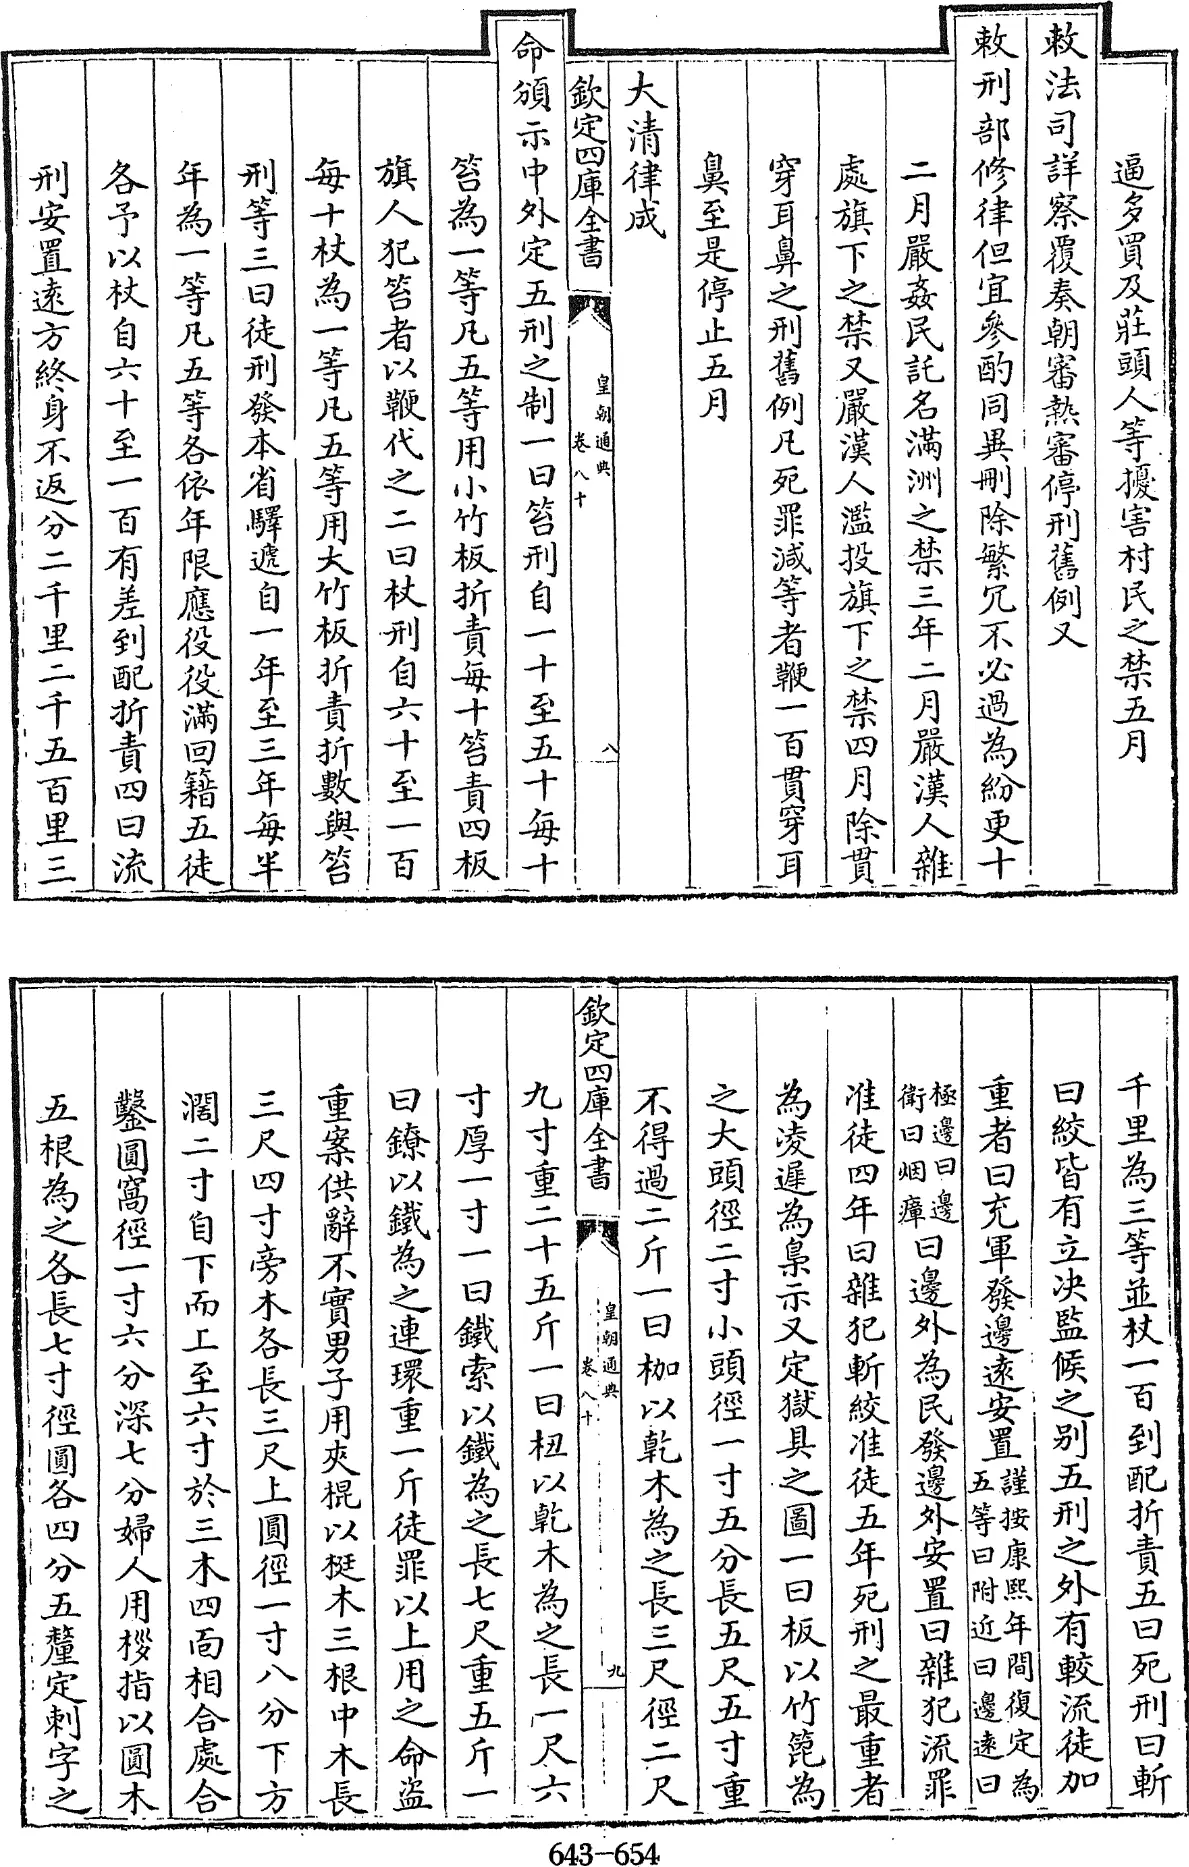 逼多買及莊頭人等擾害村民之禁五月
敕法司詳察覆奏朝審熱審停刑舊例又
敕刑部修律但宜參酌同異刪除繁冗不必過為紛更十
二月嚴姦民託名滿洲之禁三年二月嚴漢人雜
處旗下之禁又嚴漢人濫投旗下之禁四月除貫
穿耳鼻之刑舊例凡死罪減等者鞭一百貫穿耳
鼻至是停止五月
大清律成
欽定四庫全書
皇朝通典
卷八十
八
命頒示中外定五刑之制一曰笞刑自一十至五十每十
笞為一等凡五等用小竹板折責每十笞責四板
旗人犯笞者以鞭代之二曰杖刑自六十至一百
每十杖為一等凡五等用大竹板折責折數與笞
刑等三曰徒刑發本省驛遞自一年至三年每半
年為一等凡五等各依年限應役役滿回籍五徒
各予以杖自六十至一百有差到配折責四曰流
刑安置遠方終身不返分二千里二千五百里三
千里為三等並杖一百到配折責五曰死刑曰斬
曰絞皆有立決監候之別五刑之外有較流徒加
重者曰充軍發邊遠安置謹按康熙年間復定為
五等曰附近曰邊遠曰
極邊曰邊
衛曰烟瘴曰邊外為民發邊外安置曰雜犯流罪
准徒四年曰雜犯斬絞准徒五年死刑之最重者
為凌遲為梟示又定獄具之圖一曰板以竹篦為
之大頭徑二寸小頭徑一寸五分長五尺五寸重
不得過二斤一曰枷以乾木為之長三尺徑二尺
欽定四庫全書
皇朝通典
卷八十
九
九寸重二十五斤一曰杻以乾木為之長一尺六
寸厚一寸一曰鐵索以鐵為之長七尺重五斤一
曰鐐以鐵為之連環重一斤徒罪以上用之命盜
重案供辭不實男子用夾棍以梃木三根中木長
三尺四寸旁木各長三尺上圓徑一寸八分下方
濶二寸自下而上至六寸於三木四面相合處合
鑿圓窩徑一寸六分深七分婦人用桚指以圓木
五根為之各長七寸徑圓各四分五釐定刺字之
643-654